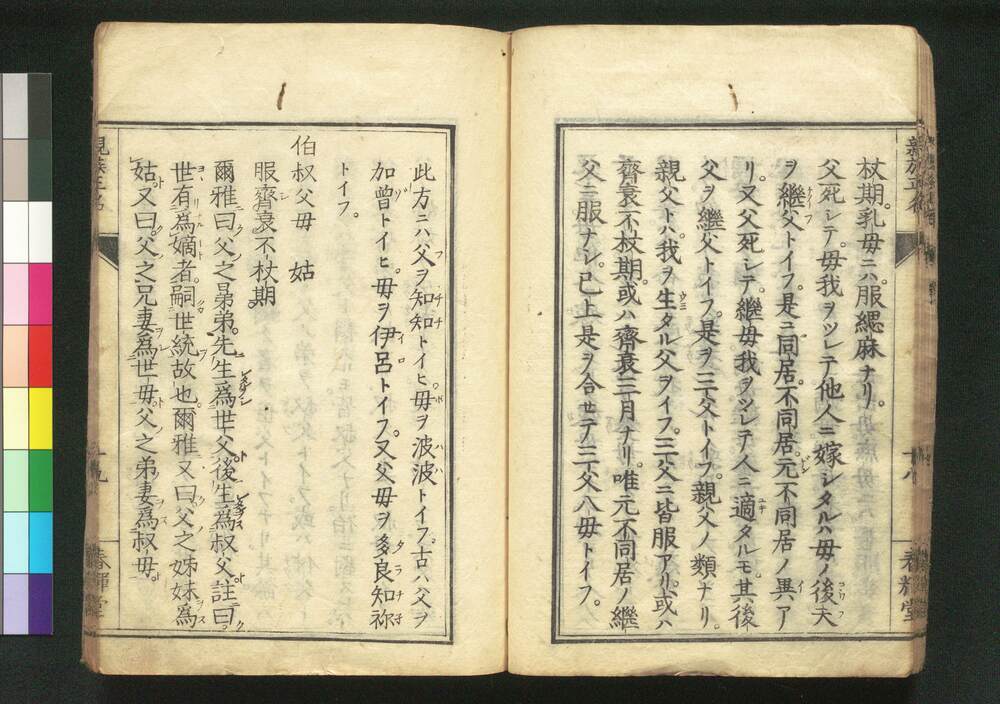 杖期。乳母ニハ。服緦麻ナリ。
父死シテ。母我ヲツレテ他人ニ嫁シタルハ母ノ後夫
ヲ繼父トイフ。是ニ同居。不同居。元不同居ノ異ア
リ。又父死シテ。繼母我ヲツレテ人ニ適タルモ。其後
父ヲ繼父トイフ。是ヲ三父トイフ。親父ノ類ナリ。
親父トハ。我ヲ生タル父ヲイフ。三父ニ皆服アリ。或ハ
齊衰不杖期。或ハ齊衰三月ナリ。唯元不同居ノ繼
父ニ服ナシ。已上是ヲ合セテ三父八母トイフ。
親族正名
十八
春輝堂
此方ニハ父ヲ知知トイヒ。母ヲ波波トイフ。古ハ父ヲ
加曾トイヒ。母ヲ伊呂トイフ。又父母ヲ多良知祢
トイフ。
伯叔父母 姑
服齊衰不杖期
爾雅曰父之晜弟。先生爲世父後生爲叔父註曰。
世有為嫡者。嗣世統故也爾雅又曰父之姊妹為
姑。又曰。父之兄妻爲世母。父之弟妻爲叔母。
親族正名
十九
春輝堂